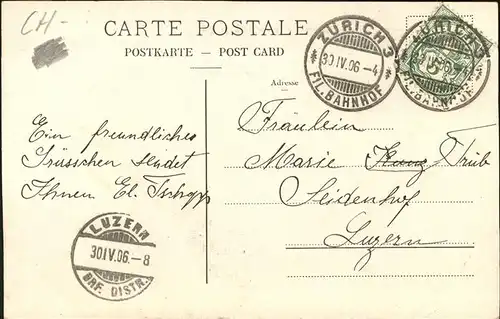 CH-
CARTE POSTALE
POSTKARTE - POST CARD
ZÜRICH 3
30 IV. 06 - 4
FIL. BAHNHOF
ZÜRICH 3
5
FIL. BAHNHOF
Adresse
Ein freundliches
Grüsschen sendet
Ihnen El.
Fräulein
Marie Kunz Trüb
Seidenhof
Luzern
LUZERN
30 IV. 06. - 8
BRF. DISTR.